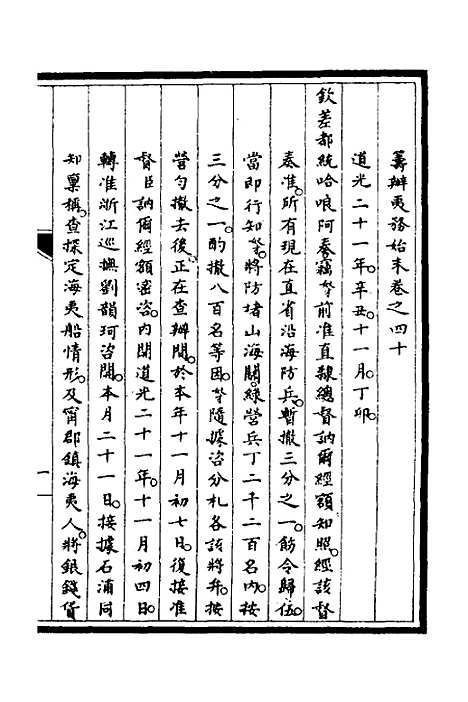 籌辦夷務始末卷之四十
道光二十一年。辛丑。十一月。丁卯。
欽差都統哈哴阿奏。竊等前准直隸總督訥爾經額知照。經該督
奏准。所有現在直省沿海防兵。暫撤三分之一。飭令歸伍。
當即行知等。將防堵山海關。綠營兵丁二千二百名內。按
三分之一。酌撤八百名等因。等隨據咨分札各該將弁。按
營勻撤去後。正在查辦間。於本年十一月初七日。復接准
督臣訥爾經額密咨。內開道光二十一年。十一月初四日。
轉准浙江巡撫劉韻珂咨開。本月二十一日。接據石浦同
知稟稱。查探定海夷船情形。及甯郡鎮海夷人。將銀錢貨